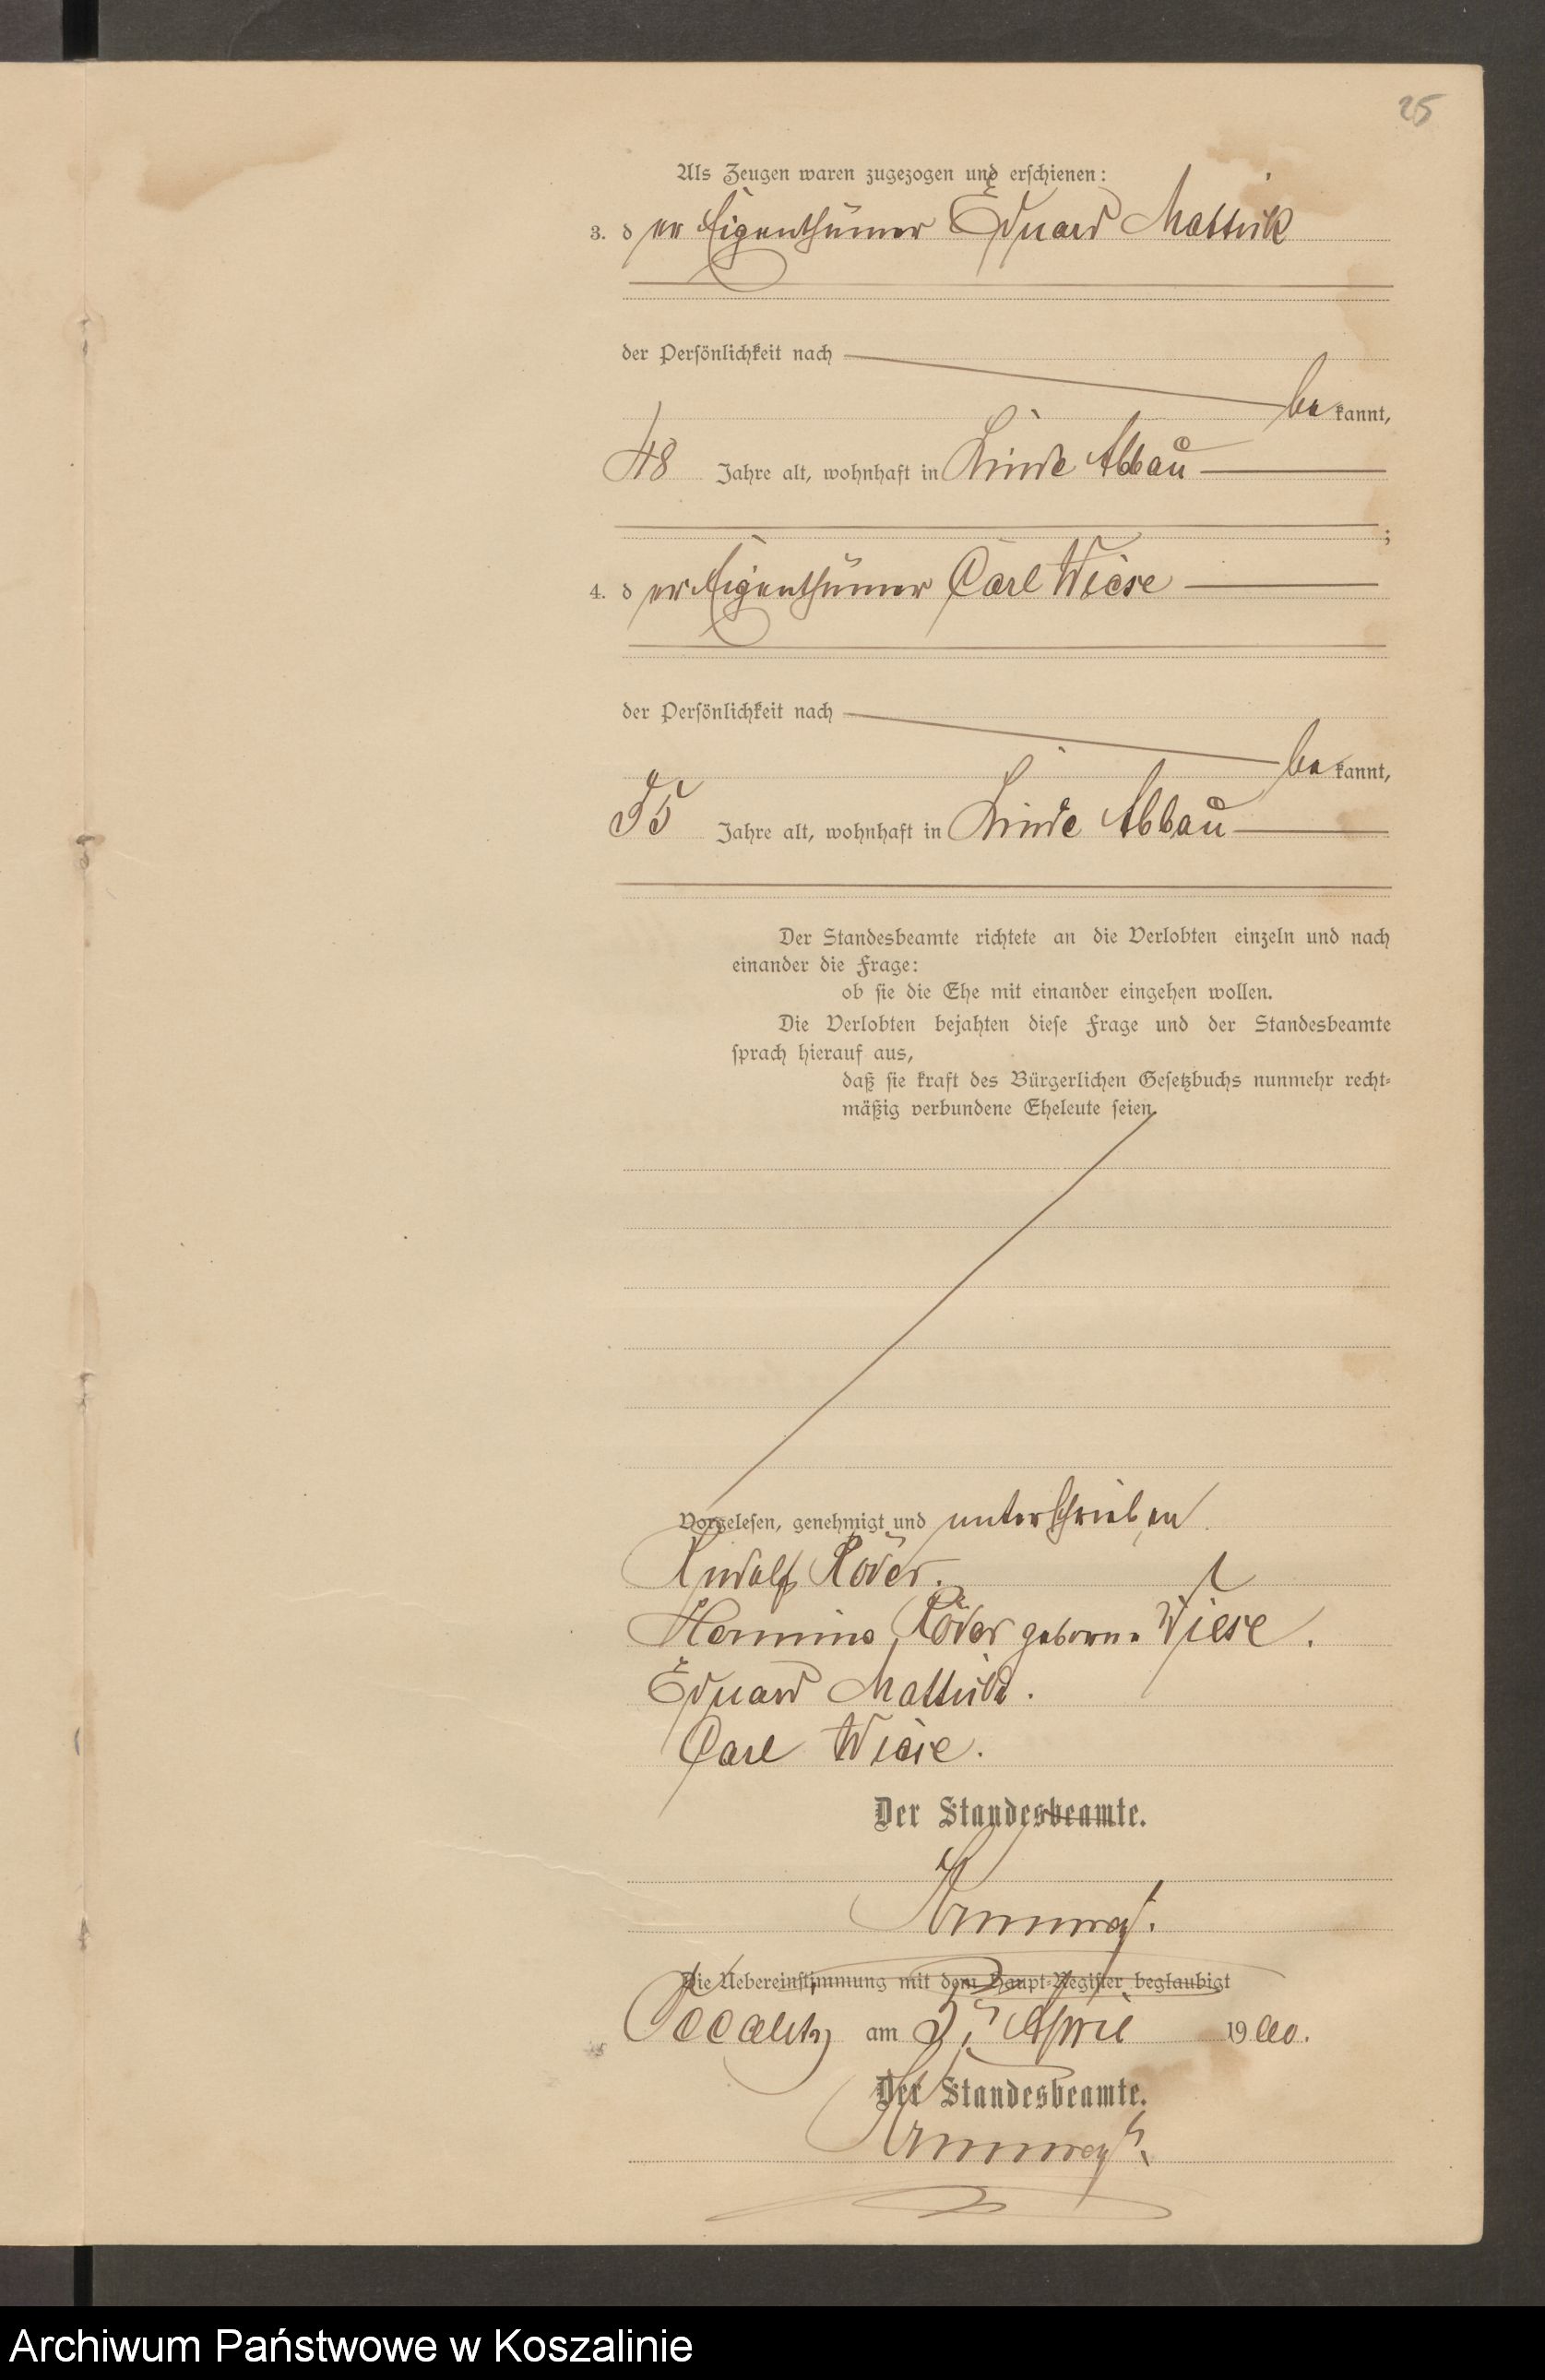 25
Als Zeugen waren zugezogen und erschienen:
3. der Eigenthümer Eduard Mattick
der Persönlichkeit nach
bekannt,
48 Jahre alt, wohnhaft in Linde Abbau
;
4. der Eigenthümer Carl Wiese
der Persönlichkeit nach
bekannt,
55 Jahre alt, wohnhaft in Linde Abbau
Der Standesbeamte richtete an die Verlobten einzeln und nach
einander die Frage:
ob sie die Ehe mit einander eingehen wollen.
Die Verlobten bejahten diese Frage und der Standesbeamte
sprach hierauf aus,
daß sie kraft des Bürgerlichen Gesetzbuchs nunmehr recht-
mäßig verbundene Eheleute seien.
Vorgelesen, genehmigt und unterschrieben
Rudolf Röder.
Hermine Röder geborne Wiese.
Eduard Mattick.
Carl Wiese.
Der Standesbeamte.
Die Uebereinstimmung mit dem Haupt-Register beglaubigt
am April 1900.
Der Standesbeamte.
Archiwum Państwowe w Koszalinie